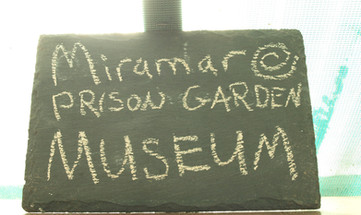 Miramar
PRISON GARDEN
MUSEUM